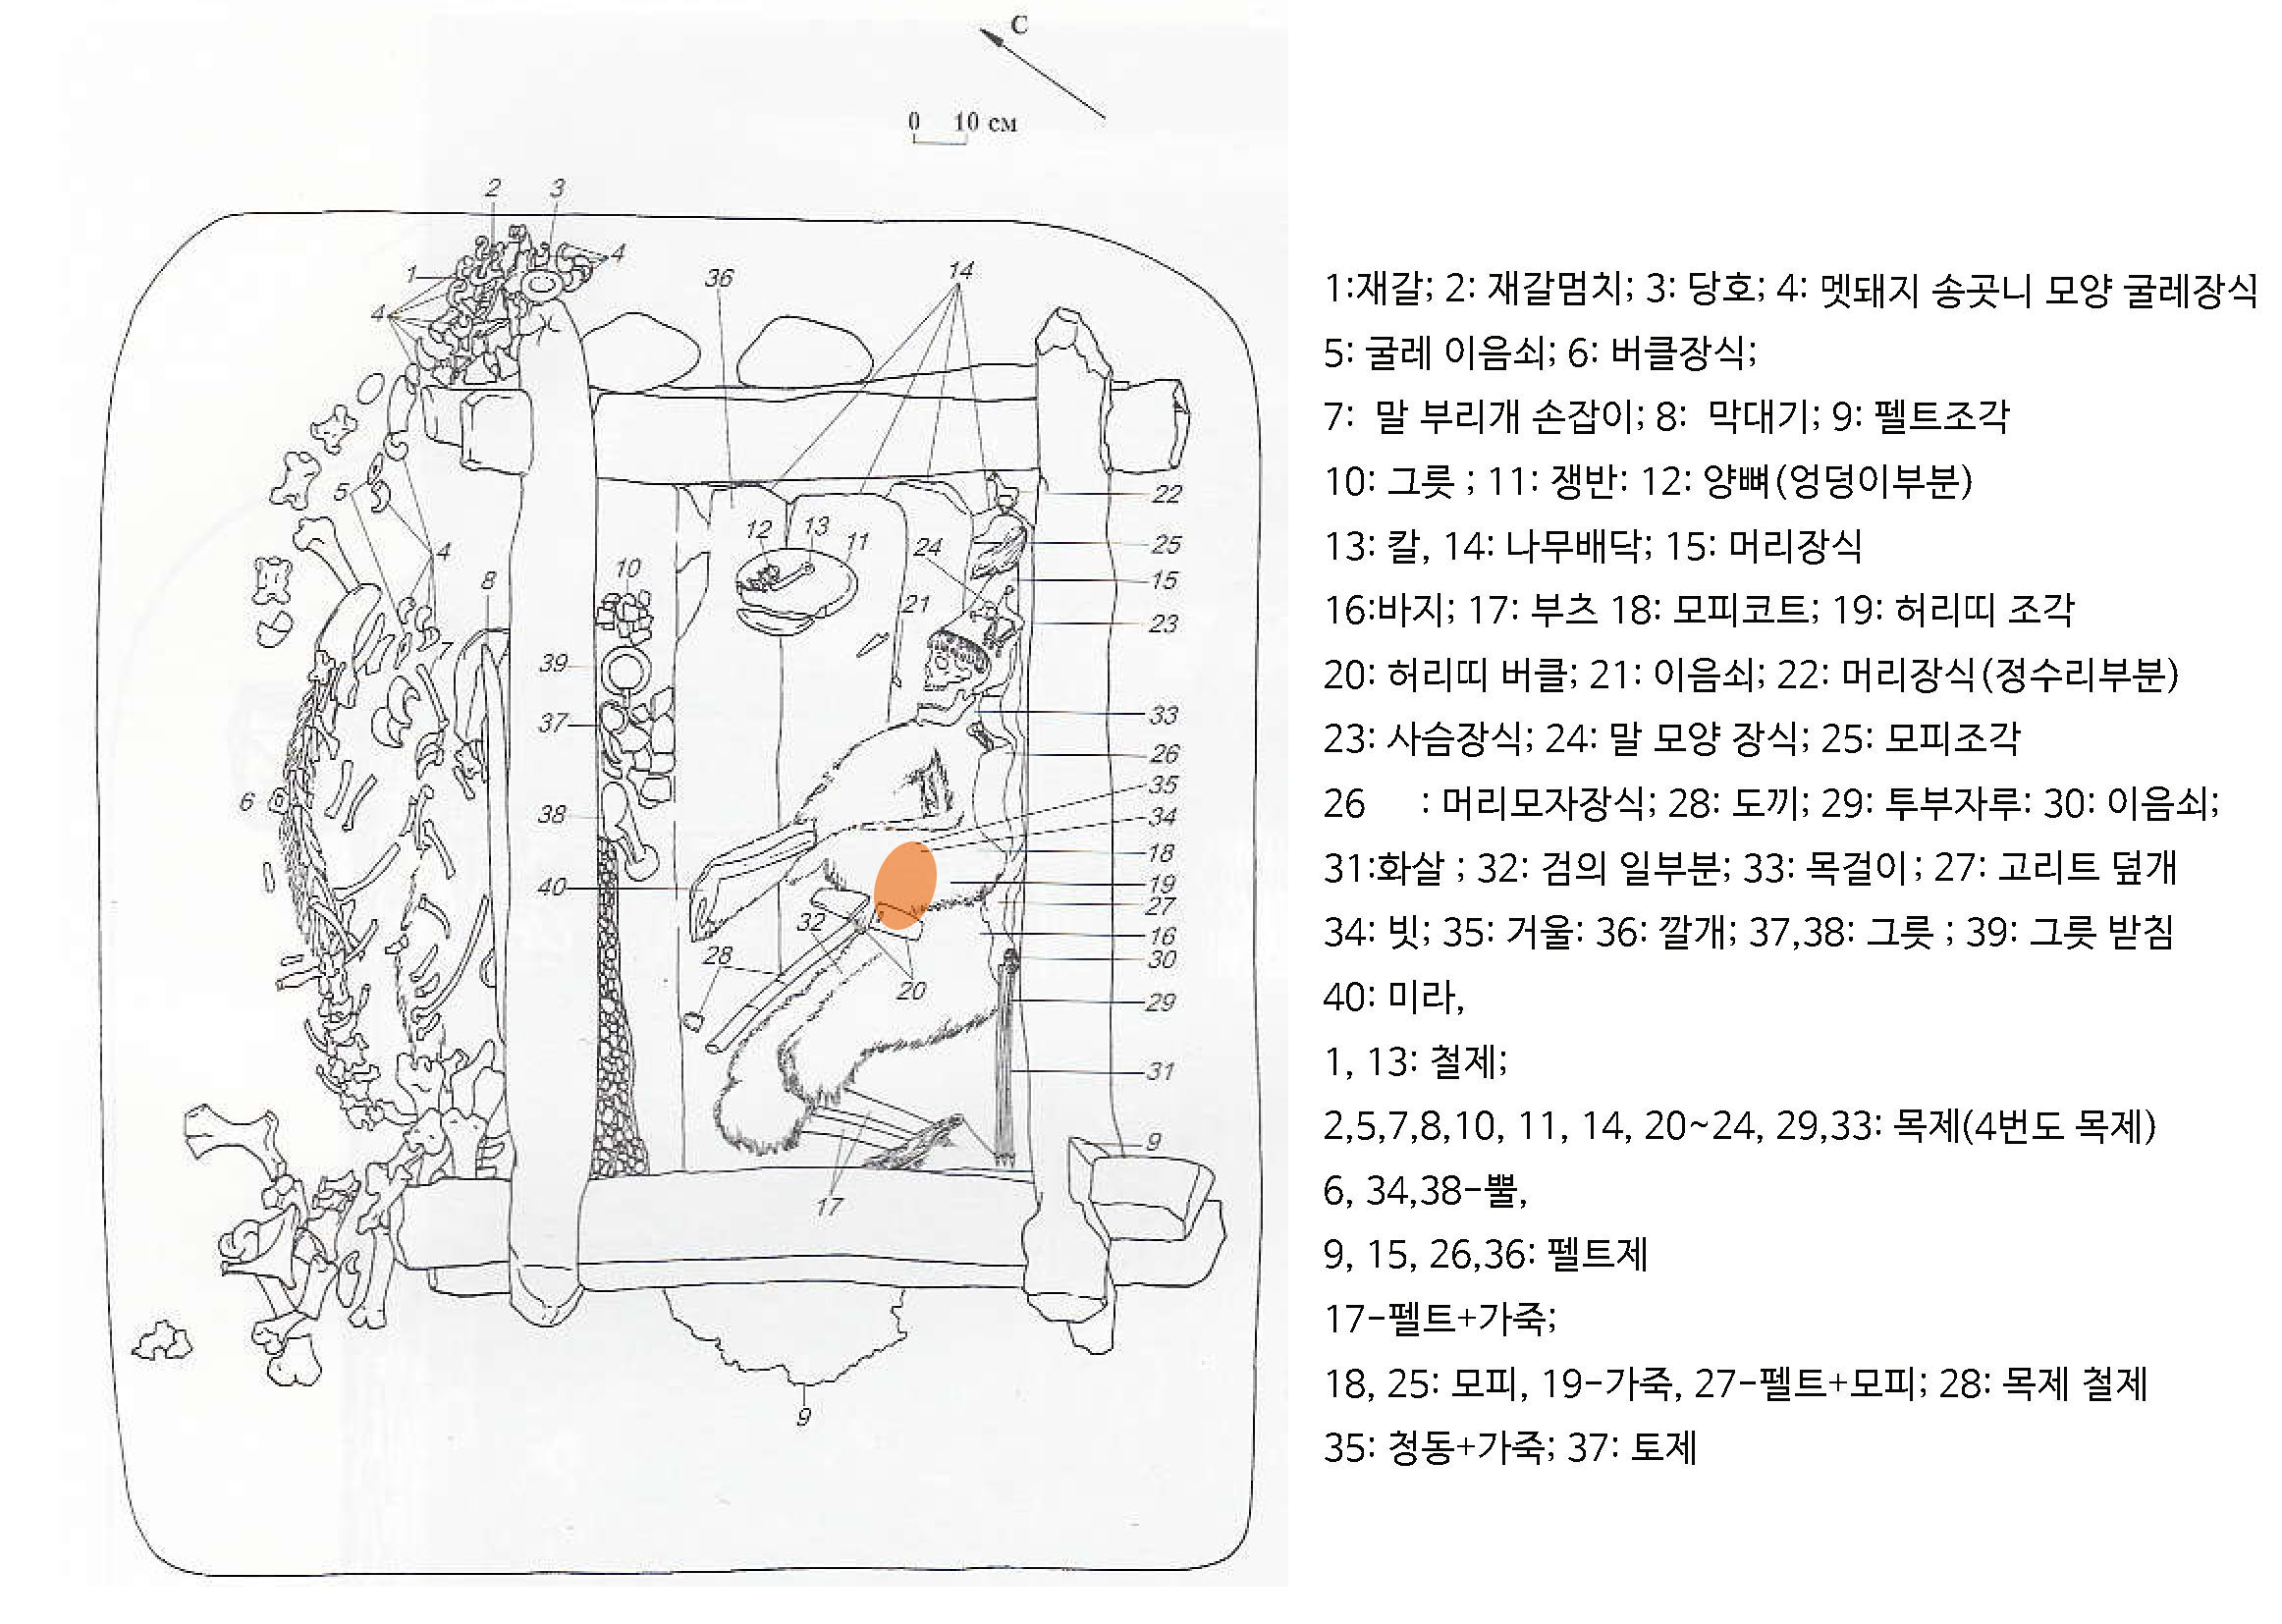 C
0 10 см
2 3
1 4
4
36 14
22
5
12 13 11 24 25
4
8 10 15
21
23
7
39
33
37
26
35
6
38 34
18
40 19
27
32 16
28 30
20 29
31
9
17
9
1:재갈; 2: 재갈멈치; 3: 당호; 4: 멧돼지 송곳니 모양 굴레장식
5: 굴레 이음쇠; 6: 버클장식;
7: 말 부리개 손잡이; 8: 막대기; 9: 펠트조각
10: 그릇 ; 11: 쟁반: 12: 양뼈(엉덩이부분)
13: 칼, 14: 나무배닥; 15: 머리장식
16:바지; 17: 부츠 18: 모피코트; 19: 허리띠 조각
20: 허리띠 버클; 21: 이음쇠; 22: 머리장식(정수리부분)
23: 사슴장식; 24: 말 모양 장식; 25: 모피조각
26 : 머리모자장식; 28: 도끼; 29: 투부자루: 30: 이음쇠;
31:화살 ; 32: 검의 일부분; 33: 목걸이; 27: 고리트 덮개
34: 빗; 35: 거울: 36: 깔개; 37,38: 그릇 ; 39: 그릇 받침
40: 미라,
1, 13: 철제;
2,5,7,8,10, 11, 14, 20~24, 29,33: 목제(4번도 목제)
6, 34,38-뿔,
9, 15, 26,36: 펠트제
17-펠트+가죽;
18, 25: 모피, 19-가죽, 27-펠트+모피; 28: 목제 철제
35: 청동+가죽; 37: 토제